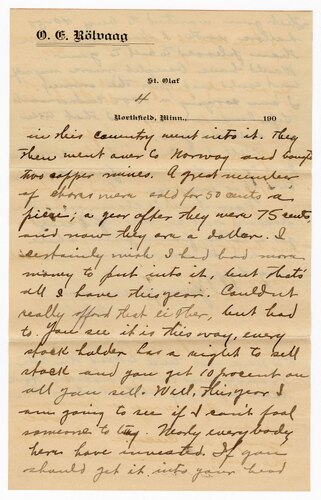 O. E. Rölvaag
St. Olaf
4
Northfield, Minn., 190
in this country went into it. They
then went over to Norway and bought
two copper mines. A great number
of shares were sold for 50 cents a
piece; a year after they were 75 cents,
and now they are a dollar. I
certainly wish I had had more
money to put into it, but that's
all I have this year. Couldn't
really afford that either, but had
to. You see it is this way, every
stock holder has a right to sell
stock and you get 10 procent on
all you sell. Well, this year I
am going to see if I can't fool
someone to buy. Nearly everybody
here have invested. If you
should get it into your head